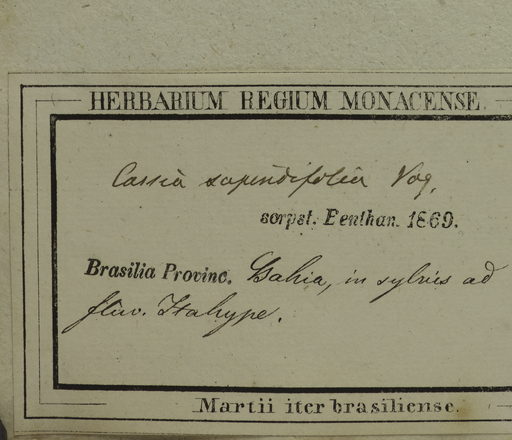 HERBARIUM REGIUM MONACENSE.
Cassia sapindifolia Vog.
scrpst. Benthan. 1869.
Brasilia Provinc. Bahia, in sylvis ad
fluv. Itahype.
Martii iter brasiliense.